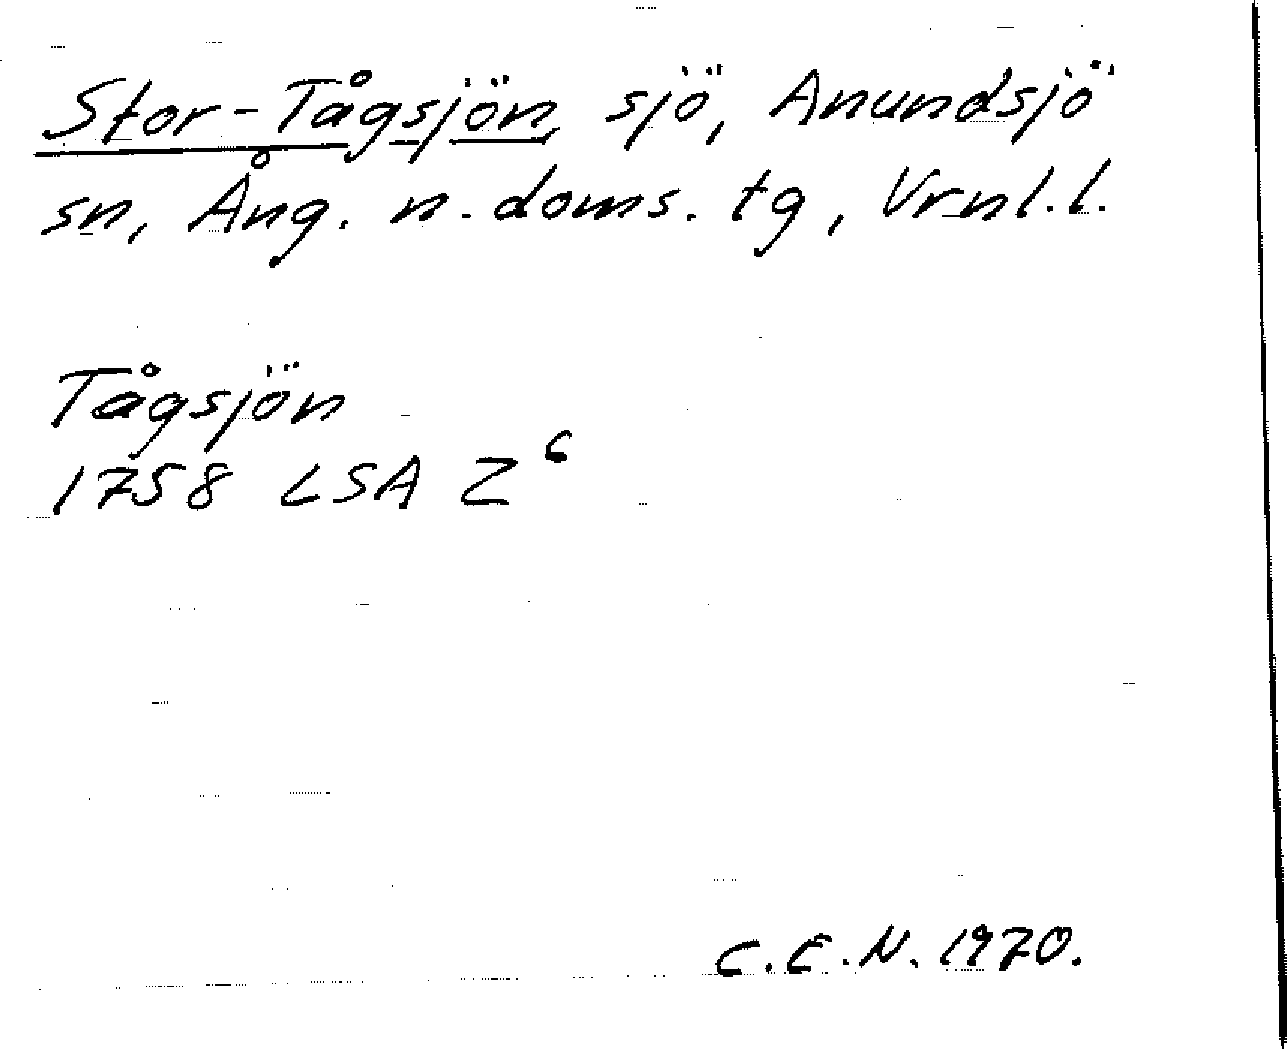 Stor-Tågsjön, sjö, Anundsjö
sn, Ång. n. doms. tg, Vrnl.l.
Tågsjön
1758 LSA Z⁶
C.E.N. 1970.